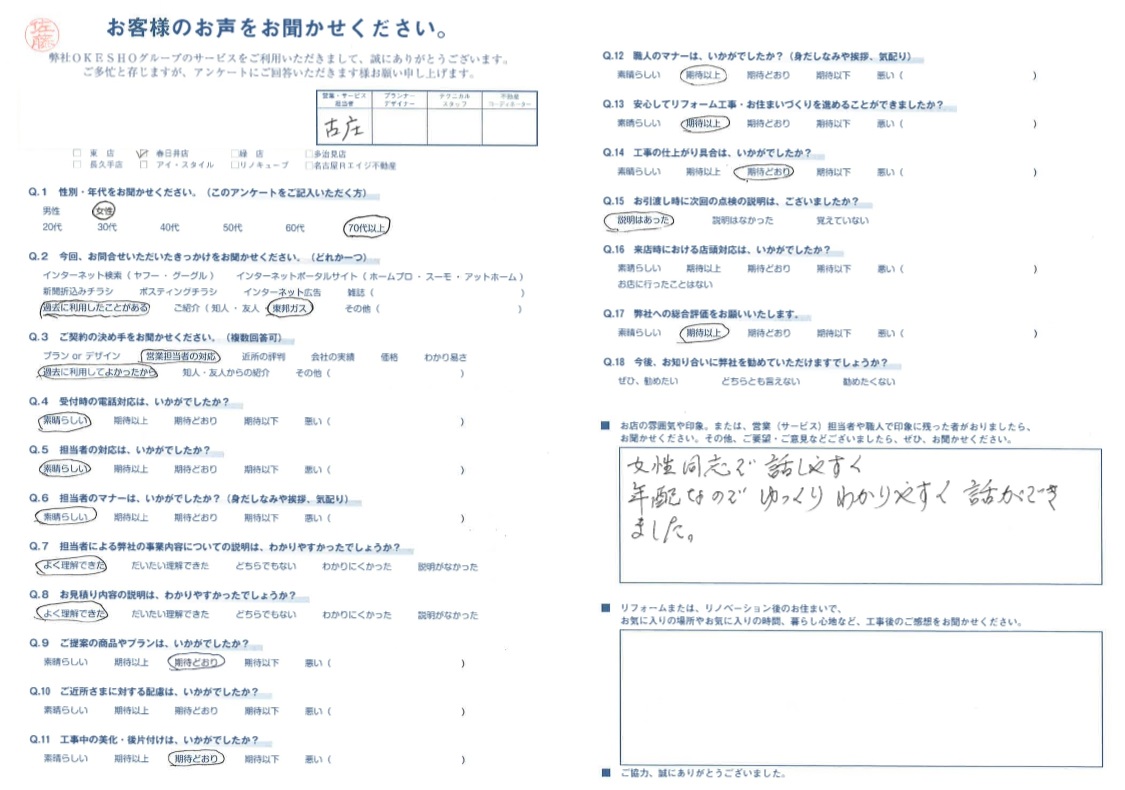 佐藤
お客様のお声をお聞かせください。
弊社OKESHOグループのサービスをご利用いただきまして、誠にありがとうございます。
ご多忙と存じますが、アンケートにご回答いただきます様お願い申し上げます。
営業・サービス担当者 プランナーデザイナー テクニカルスタッフ 不動産コーディネーター
古庄
□ 東 店 ☑ 春日井店 □緑 店 □多治見店
□ 長久手店 □ アイ・スタイル □リノキューブ □名古屋Rエイジ不動産
Q.1 性別・年代をお聞かせください。（このアンケートをご記入いただく方）
男性 女性
20代 30代 40代 50代 60代 70代以上
Q.2 今回、お問合せいただいたきっかけをお聞かせください。（どれか一つ）
インターネット検索（ ヤフー ・ グーグル ） インターネットポータルサイト（ ホームプロ ・ スーモ ・ アットホーム ）
新聞折込みチラシ ポスティングチラシ インターネット広告 雑誌（ ）
過去に利用したことがある ご紹介（ 知人 ・ 友人 ・ 東邦ガス その他（ ）
Q.3 ご契約の決め手をお聞かせください。（複数回答可）
プラン or デザイン 営業担当者の対応 近所の評判 会社の実績 価格 わかり易さ
過去に利用してよかったから 知人・友人からの紹介 その他（ ）
Q.4 受付時の電話対応は、いかがでしたか？
素晴らしい 期待以上 期待どおり 期待以下 悪い（ ）
Q.5 担当者の対応は、いかがでしたか？
素晴らしい 期待以上 期待どおり 期待以下 悪い（ ）
Q.6 担当者のマナーは、いかがでしたか？（身だしなみや挨拶、気配り）
素晴らしい 期待以上 期待どおり 期待以下 悪い（ ）
Q.7 担当者による弊社の事業内容についての説明は、わかりやすかったでしょうか？
よく理解できた だいたい理解できた どちらでもない わかりにくかった 説明がなかった
Q.8 お見積り内容の説明は、わかりやすかったでしょうか？
よく理解できた だいたい理解できた どちらでもない わかりにくかった 説明がなかった
Q.9 ご提案の商品やプランは、いかがでしたか？
素晴らしい 期待以上 期待どおり 期待以下 悪い（ ）
Q.10 ご近所さまに対する配慮は、いかがでしたか？
素晴らしい 期待以上 期待どおり 期待以下 悪い（ ）
Q.11 工事中の美化・後片付けは、いかがでしたか？
素晴らしい 期待以上 期待どおり 期待以下 悪い（ ）
Q.12 職人のマナーは、いかがでしたか？（身だしなみや挨拶、気配り）
素晴らしい 期待以上 期待どおり 期待以下 悪い（ ）
Q.13 安心してリフォーム工事・お住まいづくりを進めることができましたか？
素晴らしい 期待以上 期待どおり 期待以下 悪い（ ）
Q.14 工事の仕上がり具合は、いかがでしたか？
素晴らしい 期待以上 期待どおり 期待以下 悪い（ ）
Q.15 お引渡し時に次回の点検の説明は、ございましたか？
説明はあった 説明はなかった 覚えていない
Q.16 来店時における店頭対応は、いかがでしたか？
素晴らしい 期待以上 期待どおり 期待以下 悪い（ ）
お店に行ったことはない
Q.17 弊社への総合評価をお願いいたします。
素晴らしい 期待以上 期待どおり 期待以下 悪い（ ）
Q.18 今後、お知り合いに弊社を勧めていただけますでしょうか？
ぜひ、勧めたい どちらとも言えない 勧めたくない
■ お店の雰囲気や印象。または、営業（サービス）担当者や職人で印象に残った者がおりましたら、
お聞かせください。その他、ご要望・ご意見などございましたら、ぜひ、お聞かせください。
女性同志で話しやすく
年配なのでゆっくりわかりやすく話ができ
ました。
■ リフォームまたは、リノベーション後のお住まいで、
お気に入りの場所やお気に入りの時間、暮らし心地など、工事後のご感想をお聞かせください。
■ ご協力、誠にありがとうございました。